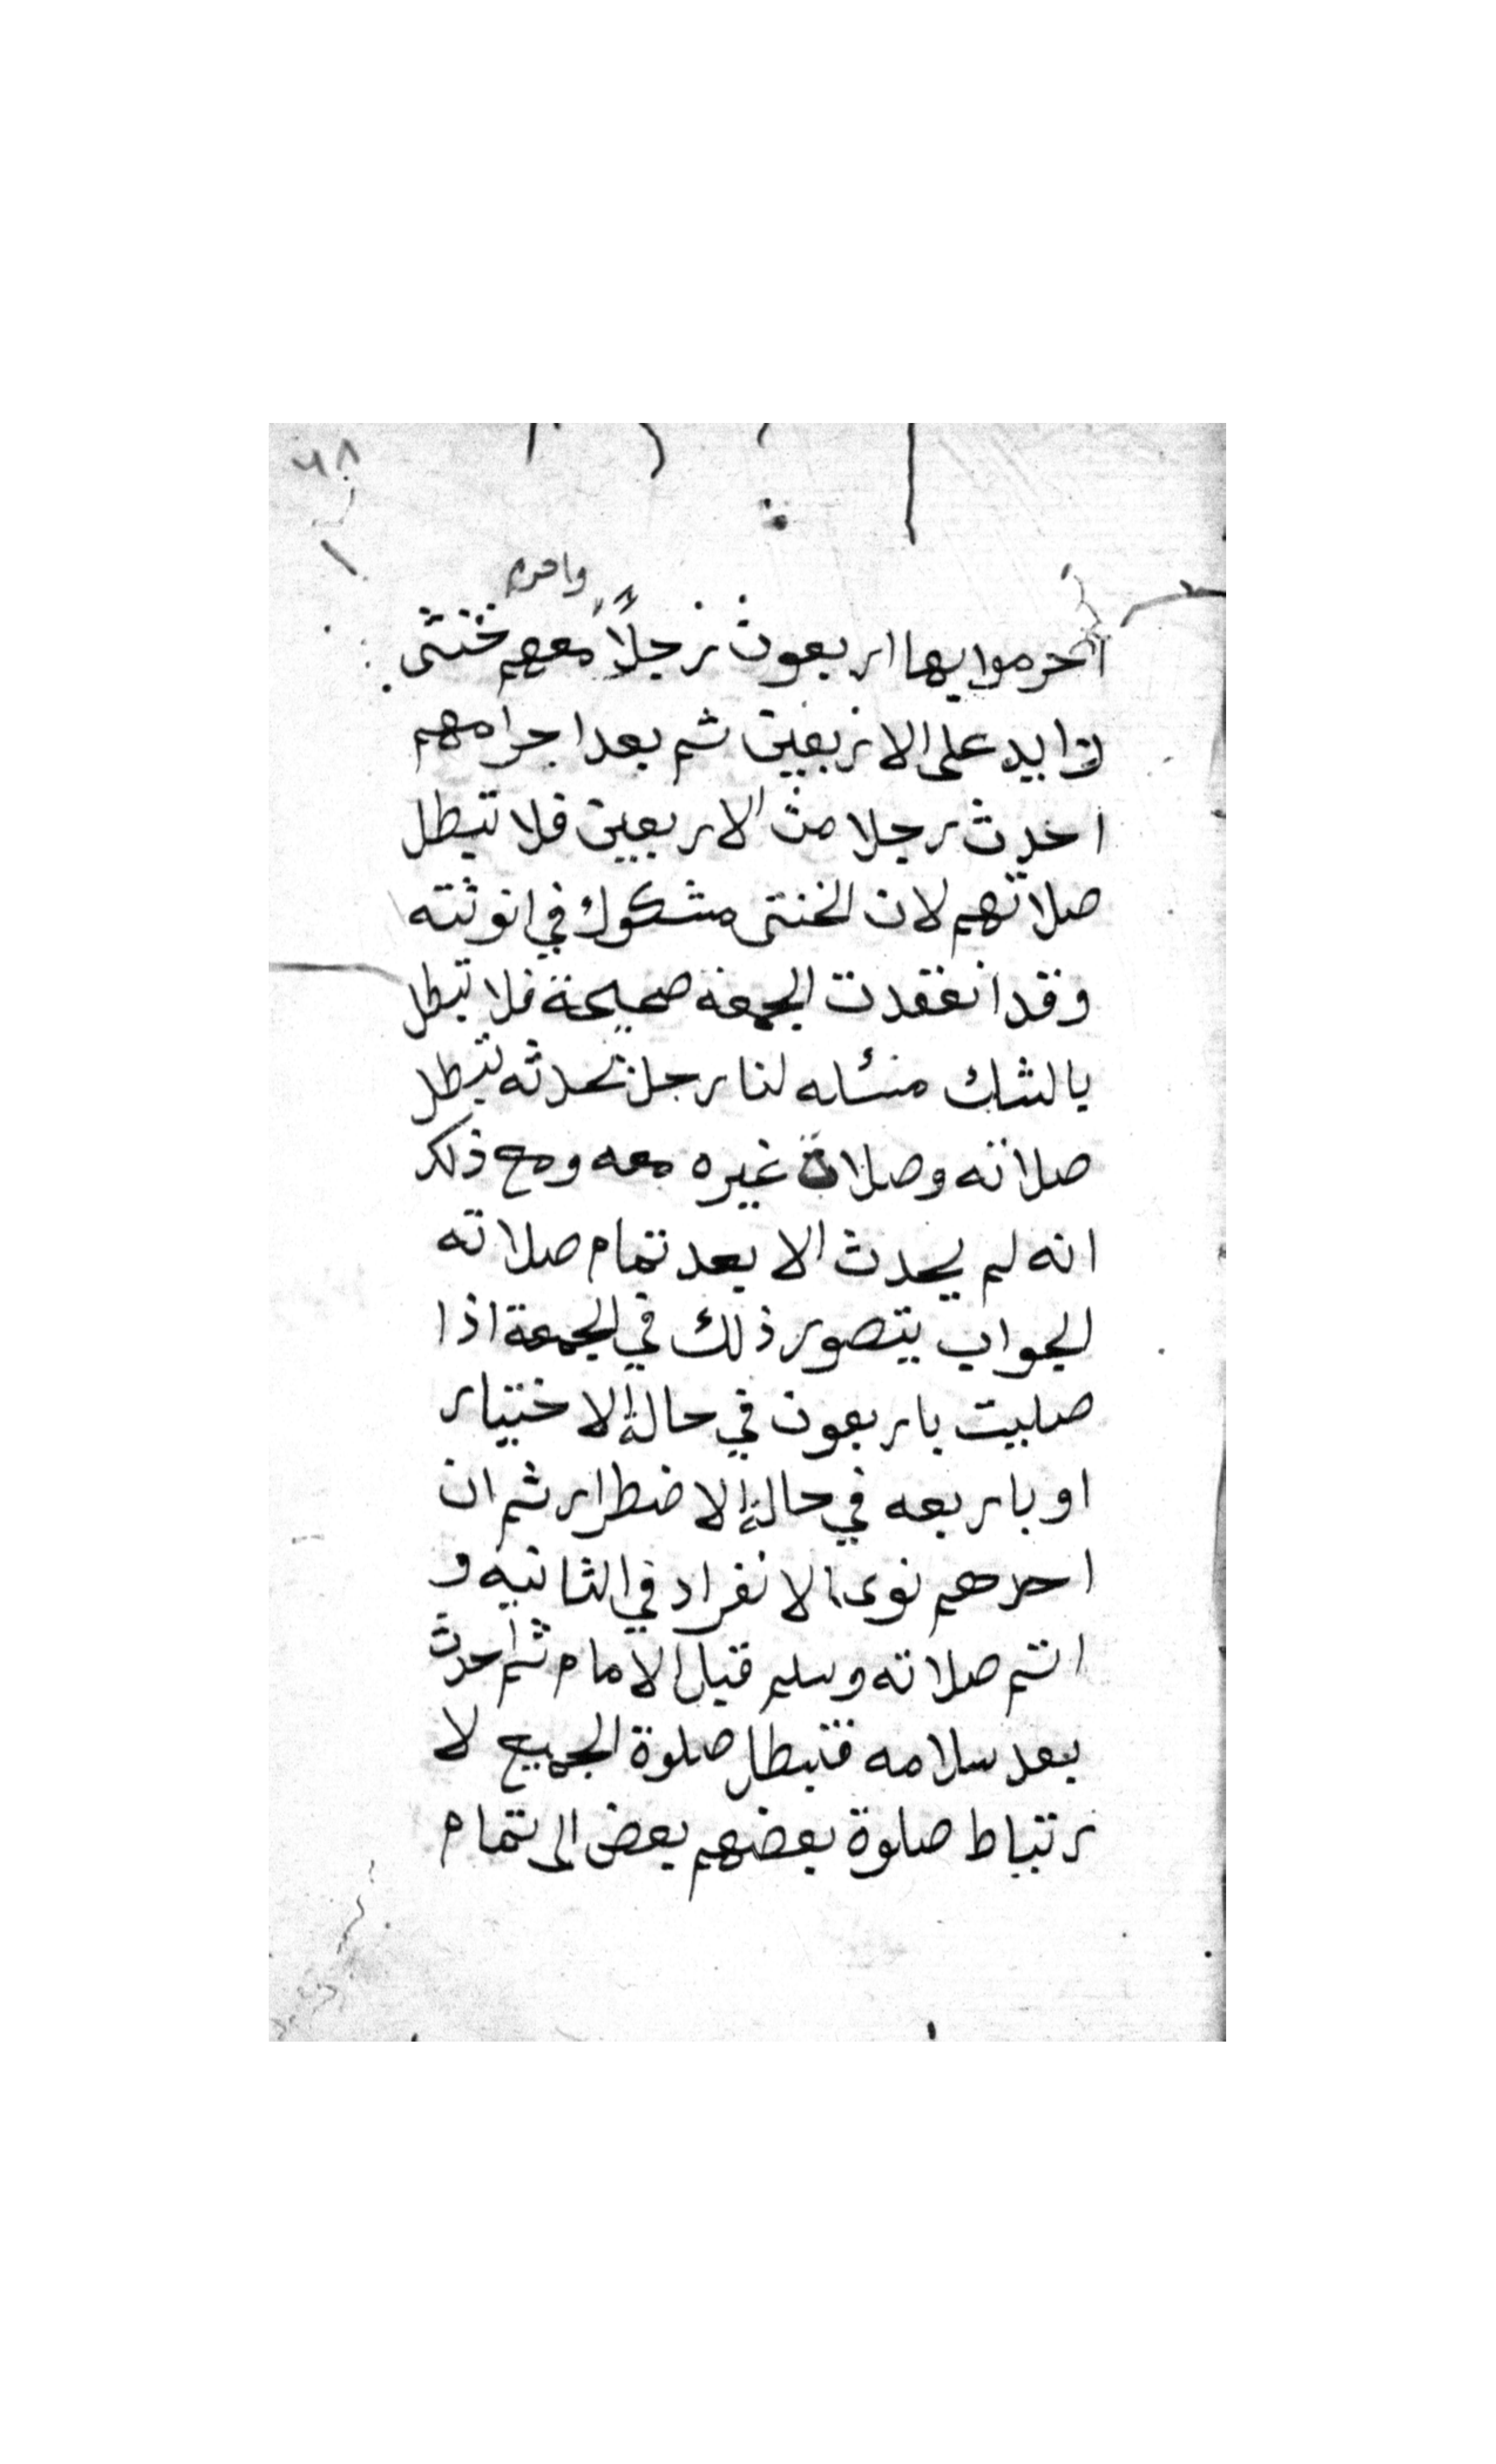 ٦٨
واحرم
احرموا بها اربعون رجلاً معهم خنثى
زايد على الاربعين ثم بعد احرامهم
احدث رجلا من الاربعين فلا تبطل
صلاتهم لان الخنثى مشكوك في انوثته
وقد انعقدت الجمعة صحيحة فلا تبطل
بالشك مسئله لنا رجل بحدثه تبطل
صلاته وصلاة غيره معه ومع ذلك
انه لم يحدث الا بعد تمام صلاته
الجواب يتصور ذلك في الجمعة اذا
صليت باربعون في حالة الاختيار
او باربعه في حالة الاضطرار ثم ان
احدهم نوى الانفراد في الثانيه و
اتم صلاته وسلم قبل الامام ثم احدث
بعد سلامه فتبطل صلوة الجميع لا
رتباط صلوة بعضهم بعض الى تمام